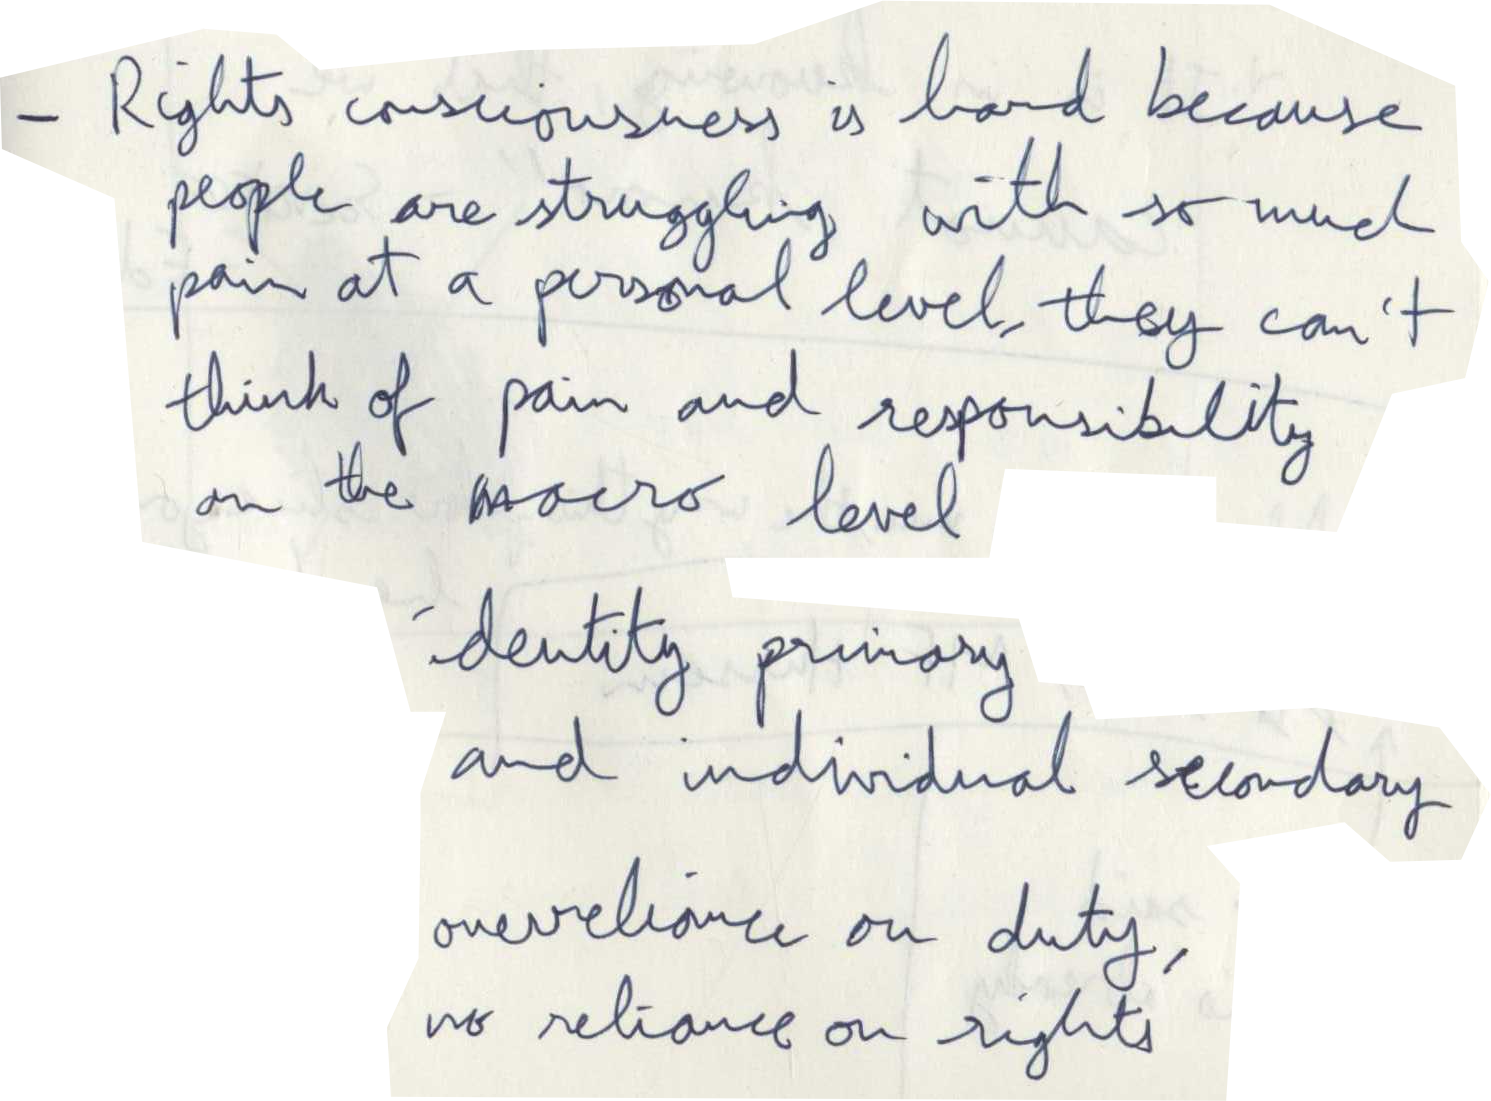 - Rights consciousness is hard because
people are struggling with so much
pain at a personal level, they can't
think of pain and responsibility
on the macro level
identity primary
and individual secondary
overreliance on duty,
no reliance on rights